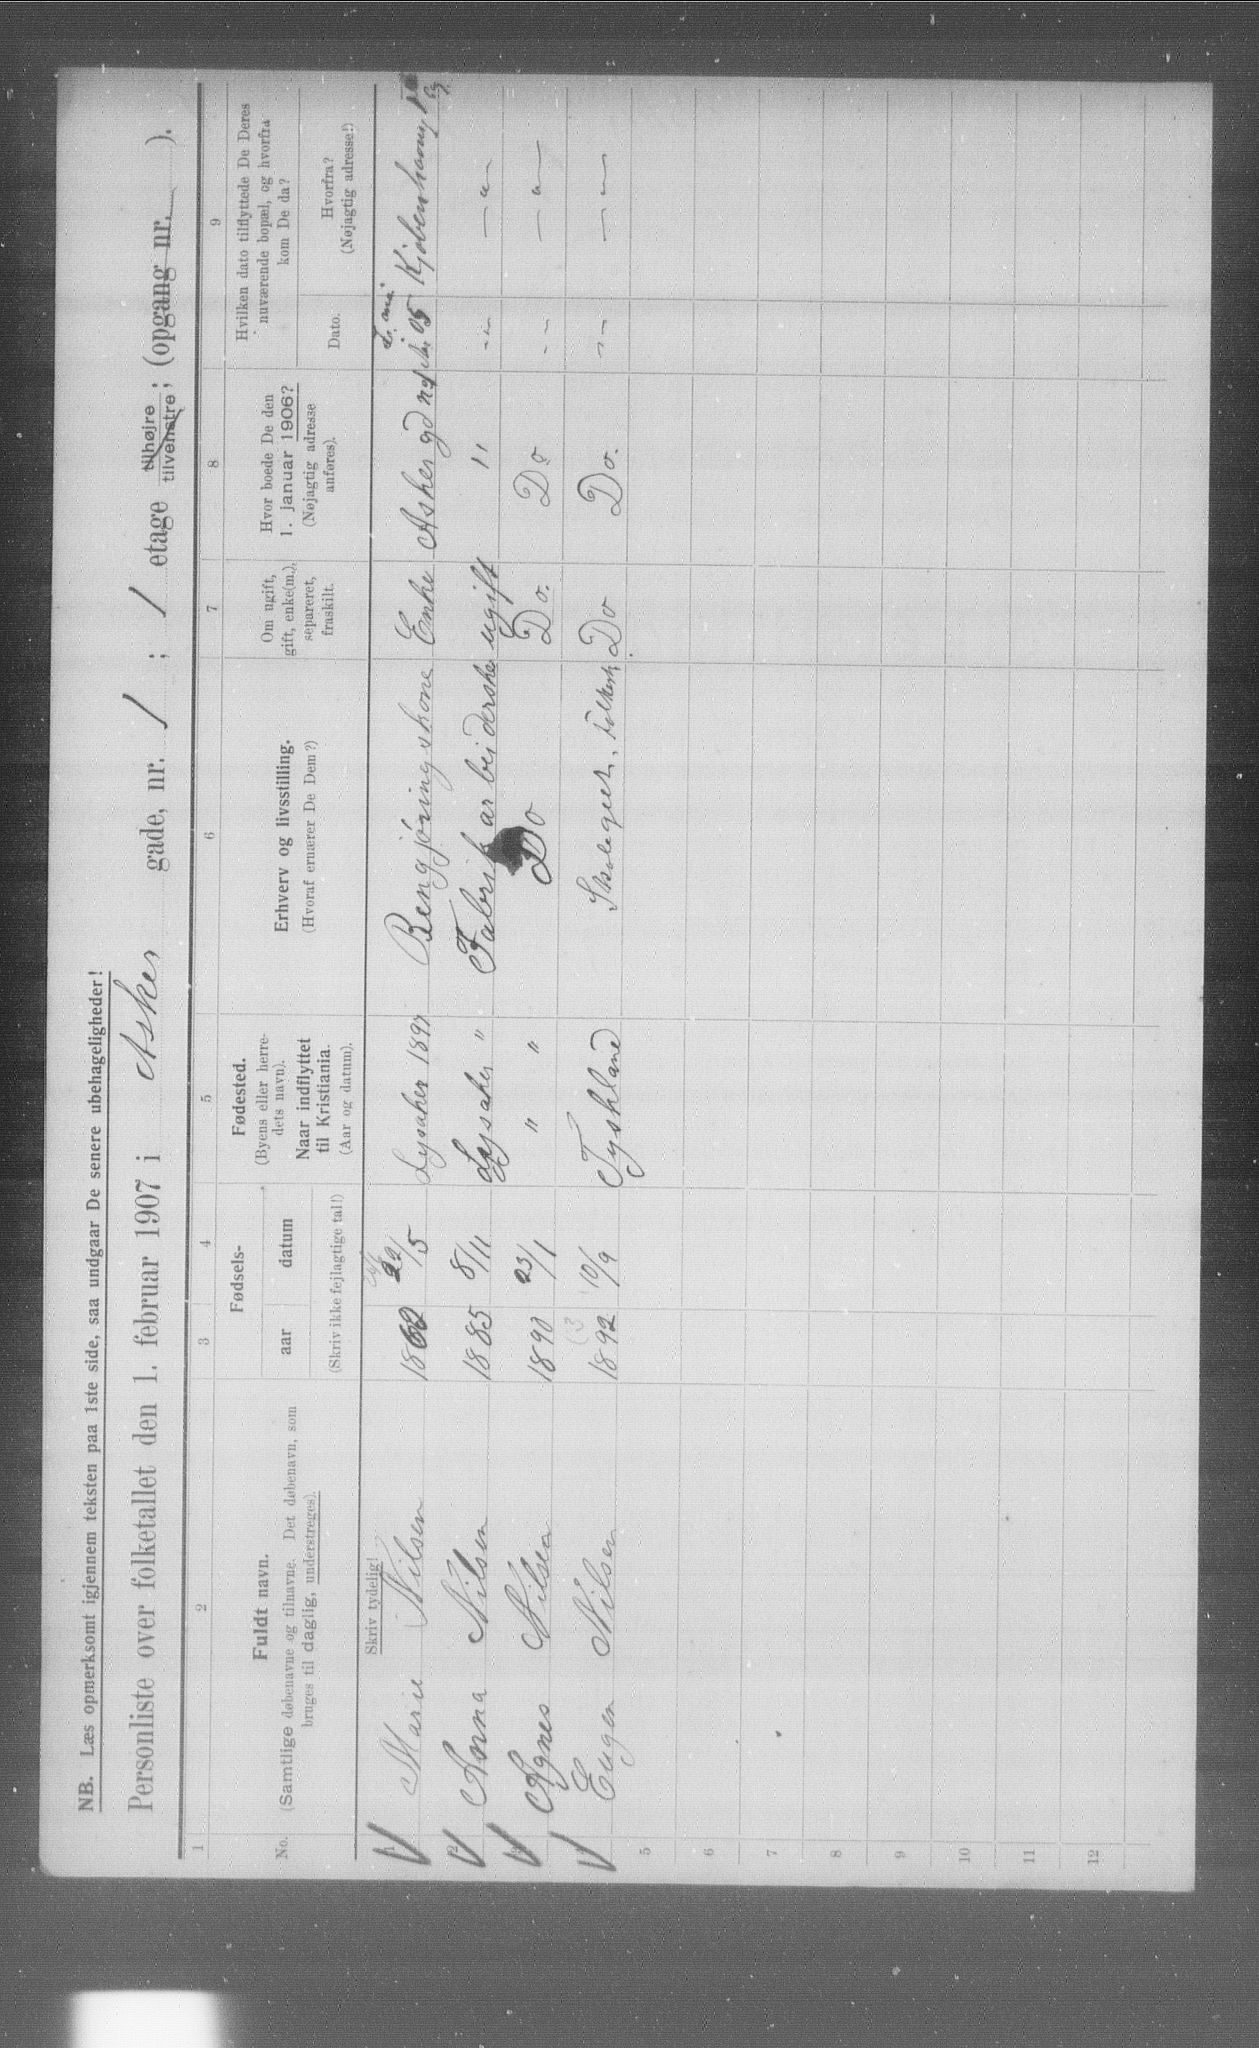 NB. Læs opmerksomt igjennem teksten paa 1ste side, saa undgaar De senere ubehageligheder!
Personliste over folketallet den 1. februar 1907 i Asker gade, nr. 1; 1 etage tilhøjre tilvenstre; (opgang nr. ).
1 2 3 4 5 6 7 8 9
No.
Fuldt navn.
(Samtlige døbenavne og tilnavne. Det døbenavn, som
bruges til daglig, understreges).
Fødsels-
aar datum
(Skriv ikke fejlagtige tal!)
Fødested.
(Byens eller herre-
dets navn).
Naar indflyttet
til Kristiania.
(Aar og datum).
Erhverv og livsstilling.
(Hvoraf ernærer De Dem?)
Om ugift,
gift, enke(m.),
separeret,
fraskilt.
Hvor boede De den
1. januar 1906?
(Nøjagtig adresse
anføres).
Hvilken dato tilflyttede De Deres
nuværende bopæl, og hvorfra
kom De da?
Dato.
Hvorfra?
(Nøjagtig adresse!)
Skriv tydelig!
1 Marie Nilsen 22/5 Lysaker 1897 Rengjøringskone Enke Askergd no 1 05 Kjøbenhavng
2 Anna Nilsen 1885 8/11 Lysaker " Fabrikarbeiderske ugift " - " - — " —
3 Agnes Nilsen 1890 23/1 " " Do Do. Do - - — " —
4 Eugen Nilsen 1892 10/9 Tyskland Skolegut, Do Do. - - — " —
5
6
7
8
9
10
11
12